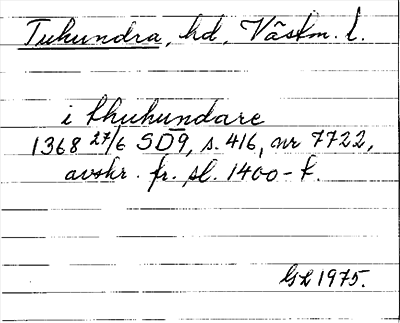 Tuhundra, hd, Västm. l.
i thuhundare
1368 27/6 SD9, s. 416, nr 7722,
avskr. fr. sl. 1400-t.
GL 1975.